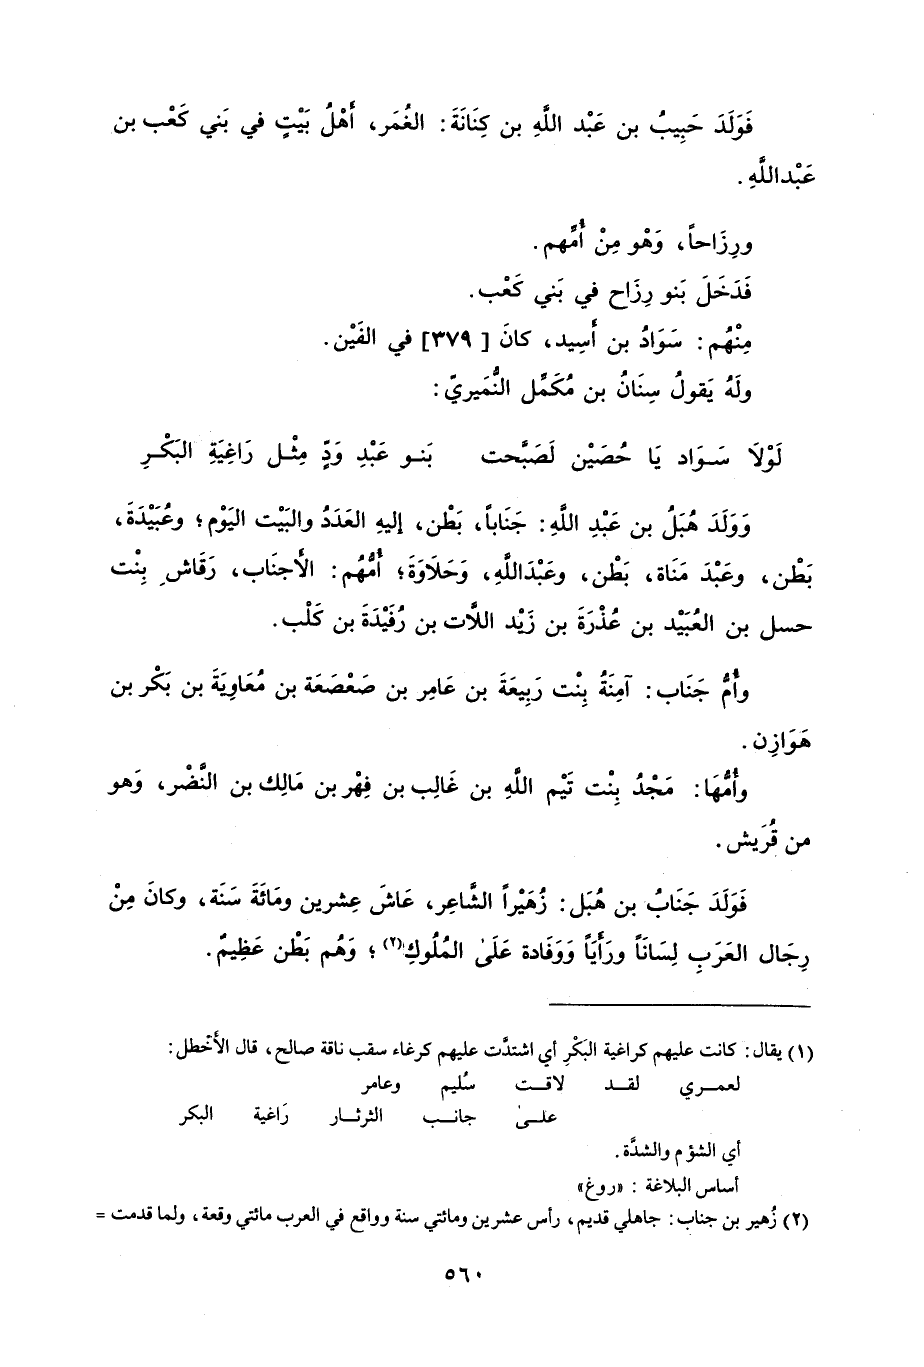 فَوَلَدَ حَبِيبُ بن عَبْد اللَّهِ بن كِنَانَةَ: الغُمَر، أَهْلُ بَيْتٍ في بَني كَعْب بن
عَبْداللَّهِ.
ورِزَاحاً، وَهْو مِنْ أُمِّهم.
فَدَخَلَ بَنو رِزَاح في بَني كَعْب.
مِنْهُم: سَوَادُ بن أَسِيد، كانَ [٣٧٩] في الفَيْن.
ولَهُ يَقولُ سِنَانُ بن مُكَمَّل النُّمَيريّ:
لَوْلَا سَـوَاد يَا حُصَيْن لَصَبَّحت    بَنـو عَبْدِ وَدٍّ مِثْـل رَاغِيَةِ البَكْـرِ
وَوَلَدَ هُبَلُ بن عَبْدِ اللَّهِ: جَنَاباً، بَطْن، إليهِ العَدَدُ والبَيْت اليَوْم؛ وعُبَيْدَةَ،
بَطْن، وعَبْدَ مَنَاة، بَطْن، وعَبْدَاللَّهِ، وَحَلَاوَةَ؛ أُمُّهُم: الأَجنَاب، رَقَاشِ بِنْت
حسل بن العُبَيْد بن عُذْرَةَ بن زَيْد اللَّات بن رُفَيْدَةَ بن كَلْب.
وأُمُّ جَنَاب: آمِنَةُ بِنْت رَبِيعَةَ بن عَامِر بن صَعْصَعَة بن مُعَاوِيَةَ بن بَكْر بن
هَوَازِن.
وأُمُّهَا: مَجْدُ بِنْت تَيْم اللَّهِ بن غَالِب بن فِهْر بن مَالِك بن النَّضْر، وَهو
من قُرَيش.
فَوَلَدَ جَنَابُ بن هُبَل: زُهَيْراً الشَّاعِر، عَاشَ عِشرين ومَائَةَ سَنَة، وكانَ مِنْ
رِجَال العَرَبِ لِسَانَاً ورَأْيَاً وَوَفَادة عَلَىٰ المُلُوكِ(٢)؛ وَهُم بَطْن عَظِيمٌ.
(١) يقال: كانت عليهم كراغية البَكْرِ أي اشتدَّت عليهم كرغاء سقب ناقة صالح، قال الأَخْطل:
لعمـري لقـد لاقـت سُليم وعامر
علـىٰ جانـب الثرثـار رَاغية البكر
أي الشؤم والشدَّة.
أساس البلاغة: «روغ»
(٢) زُهير بن جناب: جاهلي قديم، رأس عشرين ومائتي سنة وواقع في العرب مائتي وقعة، ولما قدمت =
٥٦٠